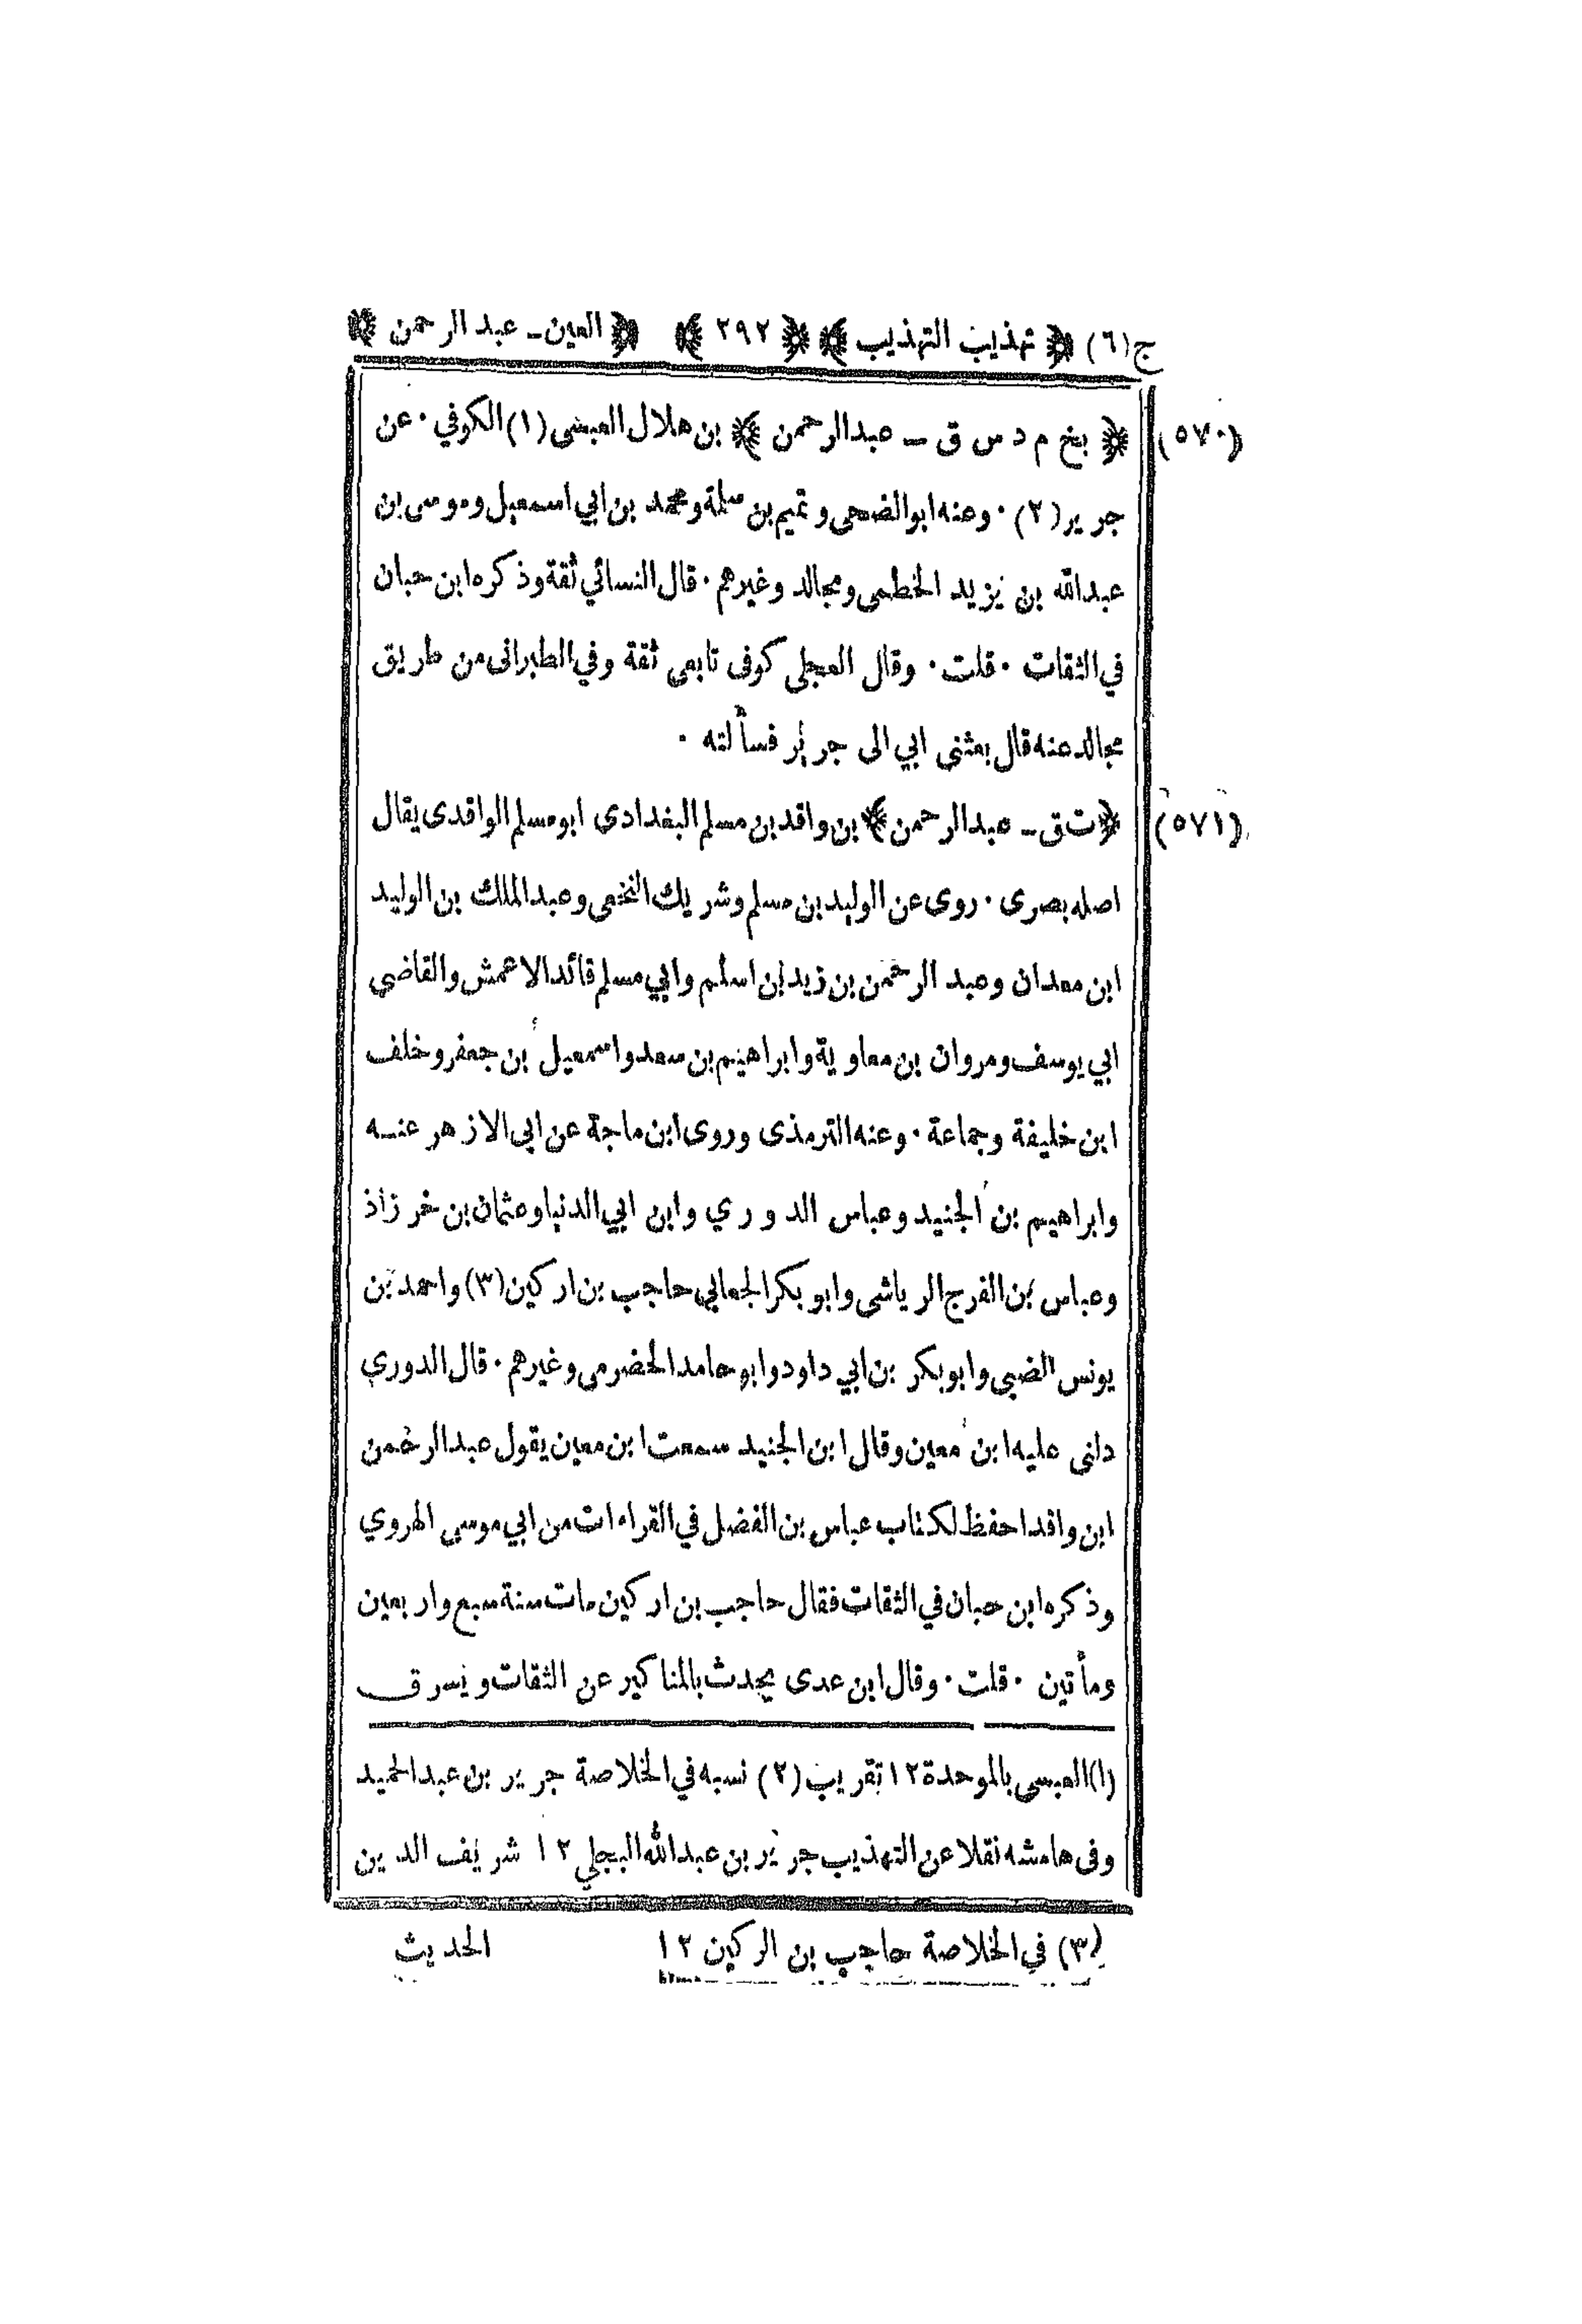 ج(٦) ﴿ تهذيب التهذيب ﴾ ﴿ ٢٩٢ ﴾ ﴿ العين ـ عبد الرحمن ﴾
(٥٧٠) ﴿ بخ م د س ق ـ عبدالرحمن ﴾ بن هلال العبسى (١) الكوفي . عن
جرير (٢) . وعنه ابو الضحى وتميم بن سلمة ومحمد بن ابي اسمعيل وموسى بن
عبدالله بن يزيد الخطمى ومجالد وغيرهم . قال النسائي ثقة وذكره ابن حبان
في الثقات . قلت . وقال العجلى كوفى تابعى ثقة وفي الطبرانى من طريق
مجالد عنه قال بعثنى ابي الى جرير فسألته .
(٥٧١) ﴿ ت ق ـ عبدالرحمن ﴾ بن واقد بن مسلم البغدادي ابو مسلم الواقدى يقال
اصله بصرى . روى عن الوليد بن مسلم وشريك النخعى وعبدالملك بن الوليد
ابن معدان وعبد الرحمن بن زيد بن اسلم وابي مسلم قائد الاعمش والقاضي
ابي يوسف ومروان بن معاوية وابراهيم بن سعد واسمعيل بن جعفر وخلف
ابن خليفة وجماعة . وعنه الترمذى وروى ابن ماجة عن ابي الازهر عنه
وابراهيم بن الجنيد وعباس الدوري وابن ابي الدنيا وعثمان بن خرزاذ
وعباس بن الفرج الرياشى وابو بكر الجعابي حاجب بن اركين (٣) واحمد بن
يونس الضبى وابو بكر بن ابي داود وابو حامد الحضرمى وغيرهم . قال الدوري
دلنى عليه ابن معين وقال ابن الجنيد سمعت ابن معين يقول عبدالرحمن
ابن واقد احفظ لكتاب عباس بن الفضل في القراءات من ابي موسى الهروي
وذكره ابن حبان في الثقات فقال حاجب بن اركين مات سنة سبع واربعين
ومأتين . قلت . وقال ابن عدى يحدث بالمناكير عن الثقات ويسرق
(١) العبسى بالموحدة ١٢ تقريب (٢) نسبه في الخلاصة جرير بن عبدالحميد
وفى هامشه نقلا عن التهذيب جرير بن عبدالله البجلي ١٢ شريف الدين
(٣) في الخلاصة حاجب بن الركين ١٢ الحديث